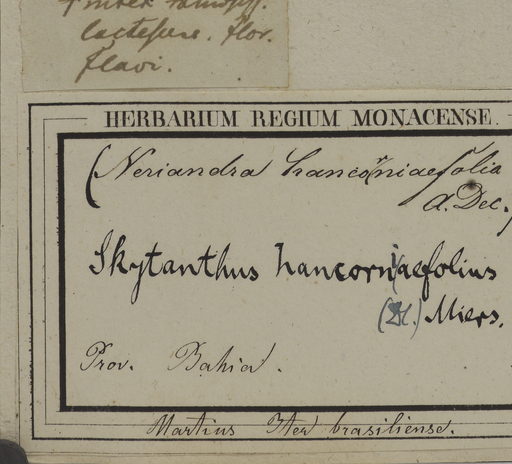 Frutex ramosiss.
lactesce. flor.
flavi.
HERBARIUM REGIUM MONACENSE.
(Neriandra hancorniaefolia
A. Dec.)
Skytanthus hancorniaefolius
(DC.) Miers.
Prov. Bahia.
Martius Iter brasiliense.